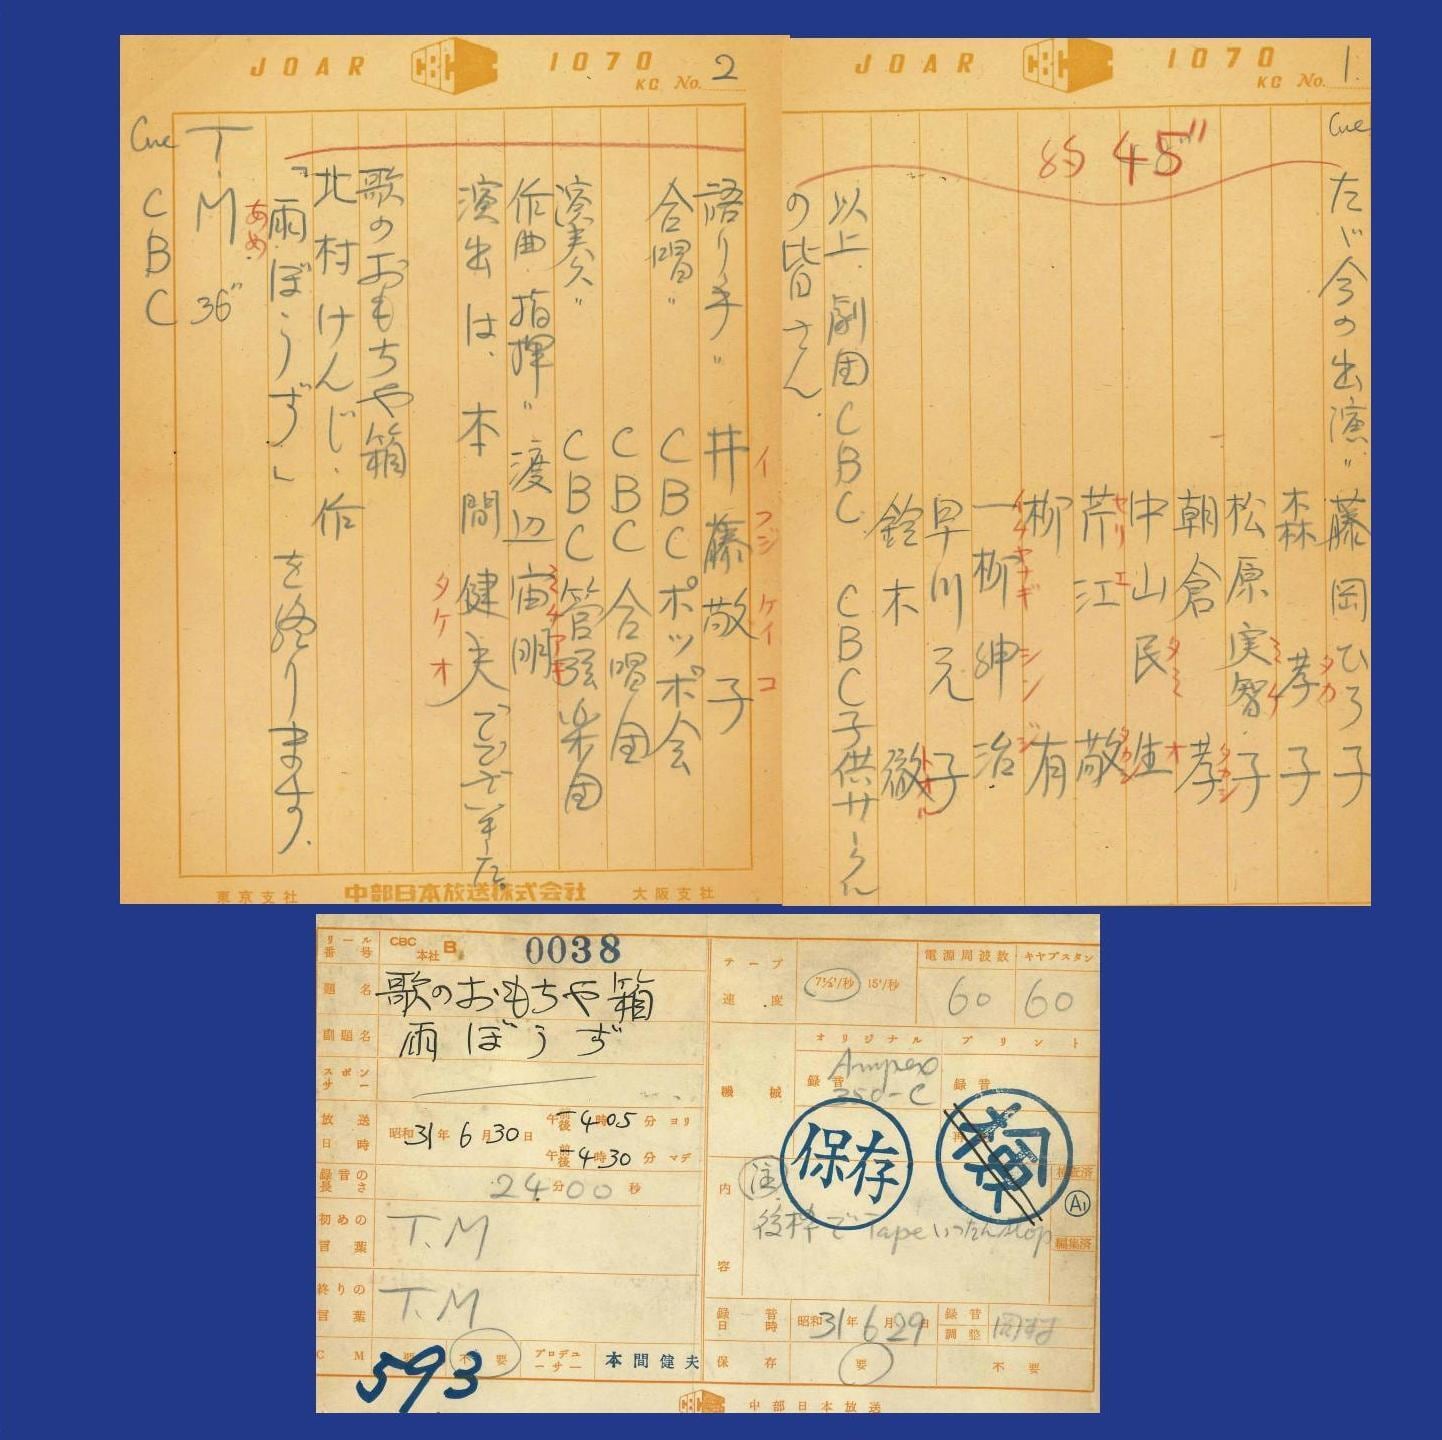 JOAR CBC 1070 KC No. 1
Cue
約45"
たゞ今の出演〃 藤岡ひろ子
森 孝子
タカ
松原実智子
ミチ
朝倉 孝
タカシ
中山民生
タミオ
芹江 敬
セリエ
柳 有
一柳紳治
イチヤナギ シンジ
早川元子
鈴木 徹
トオル
以上 劇団CBC CBC子供サークル
の皆さん
JOAR CBC 1070 KC No. 2
語り手〃 井藤敬子
イフジ ケイコ
合唱〃 CBCポッポ会
CBC合唱団
演奏〃 CBC管弦楽団
作曲 指揮〃 渡辺宙明
ミチアキ
演出は、本間健夫でございました。
タケオ
歌のおもちや箱
北村けんじ・作
「雨ぼうず」を終ります.
あめ
T.M 36"
Cue CBC
東京支社 中部日本放送株式会社 大阪支社
リール番号 CBC本社 B. 0038
題名 歌のおもちや箱
副題名 雨ぼうず
スポンサー
放送日時 昭和31年6月30日 午前後4時05分ヨリ
午前後4時30分マデ
録音の長さ 24分00秒
初めの言葉 T.M
終りの言葉 T.M
CM 要 不要 プロデューサー 本間健夫
593
テープ速度 7½"/秒 15"/秒 電源周波数 60 キャプスタン 60
機械 オリジナル プリント
録音 Ampex 350-C 録音
保存
内容 注 後枠でTapeいったんstop
検査済
編集済
録音日時 昭和31年6月29日 録音調整
保存 要 不要
CBC 中部日本放送